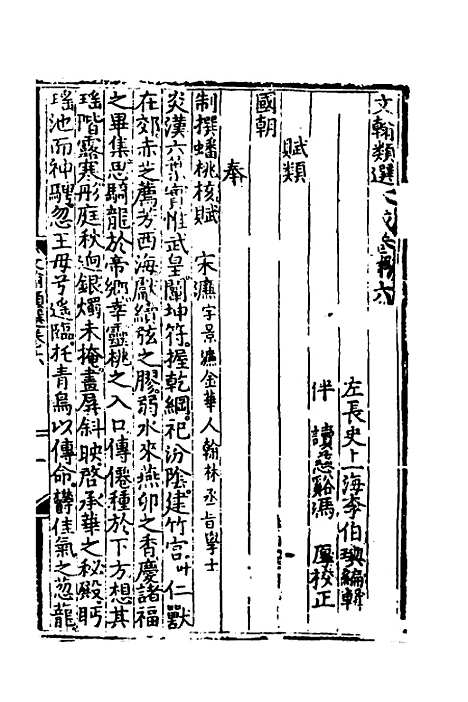 文翰類選大成卷之六
左長史上海李伯璵編輯
伴讀慈谿馮厚校正
賦類
國朝
奉
制撰蟠桃核賦 宋濂字景濂金華人翰林丞旨學士
炎漢六葉實惟武皇闡坤符握乾綱祀汾陰建竹宮叶仁獸
在郊赤芝薦芳西海獻續弦之膠弱水來燕卯之香慶諸福
之畢集思騎龍於帝鄉幸靈桃之入口傳僊種於下方想其
瑶階露寒彤庭秋迥銀燭未掩畫屏斜映啓承華之秘殿眄
瑶池而神騁忽王母兮遥臨托青鳥以傳命欝佳氣之葱蘢